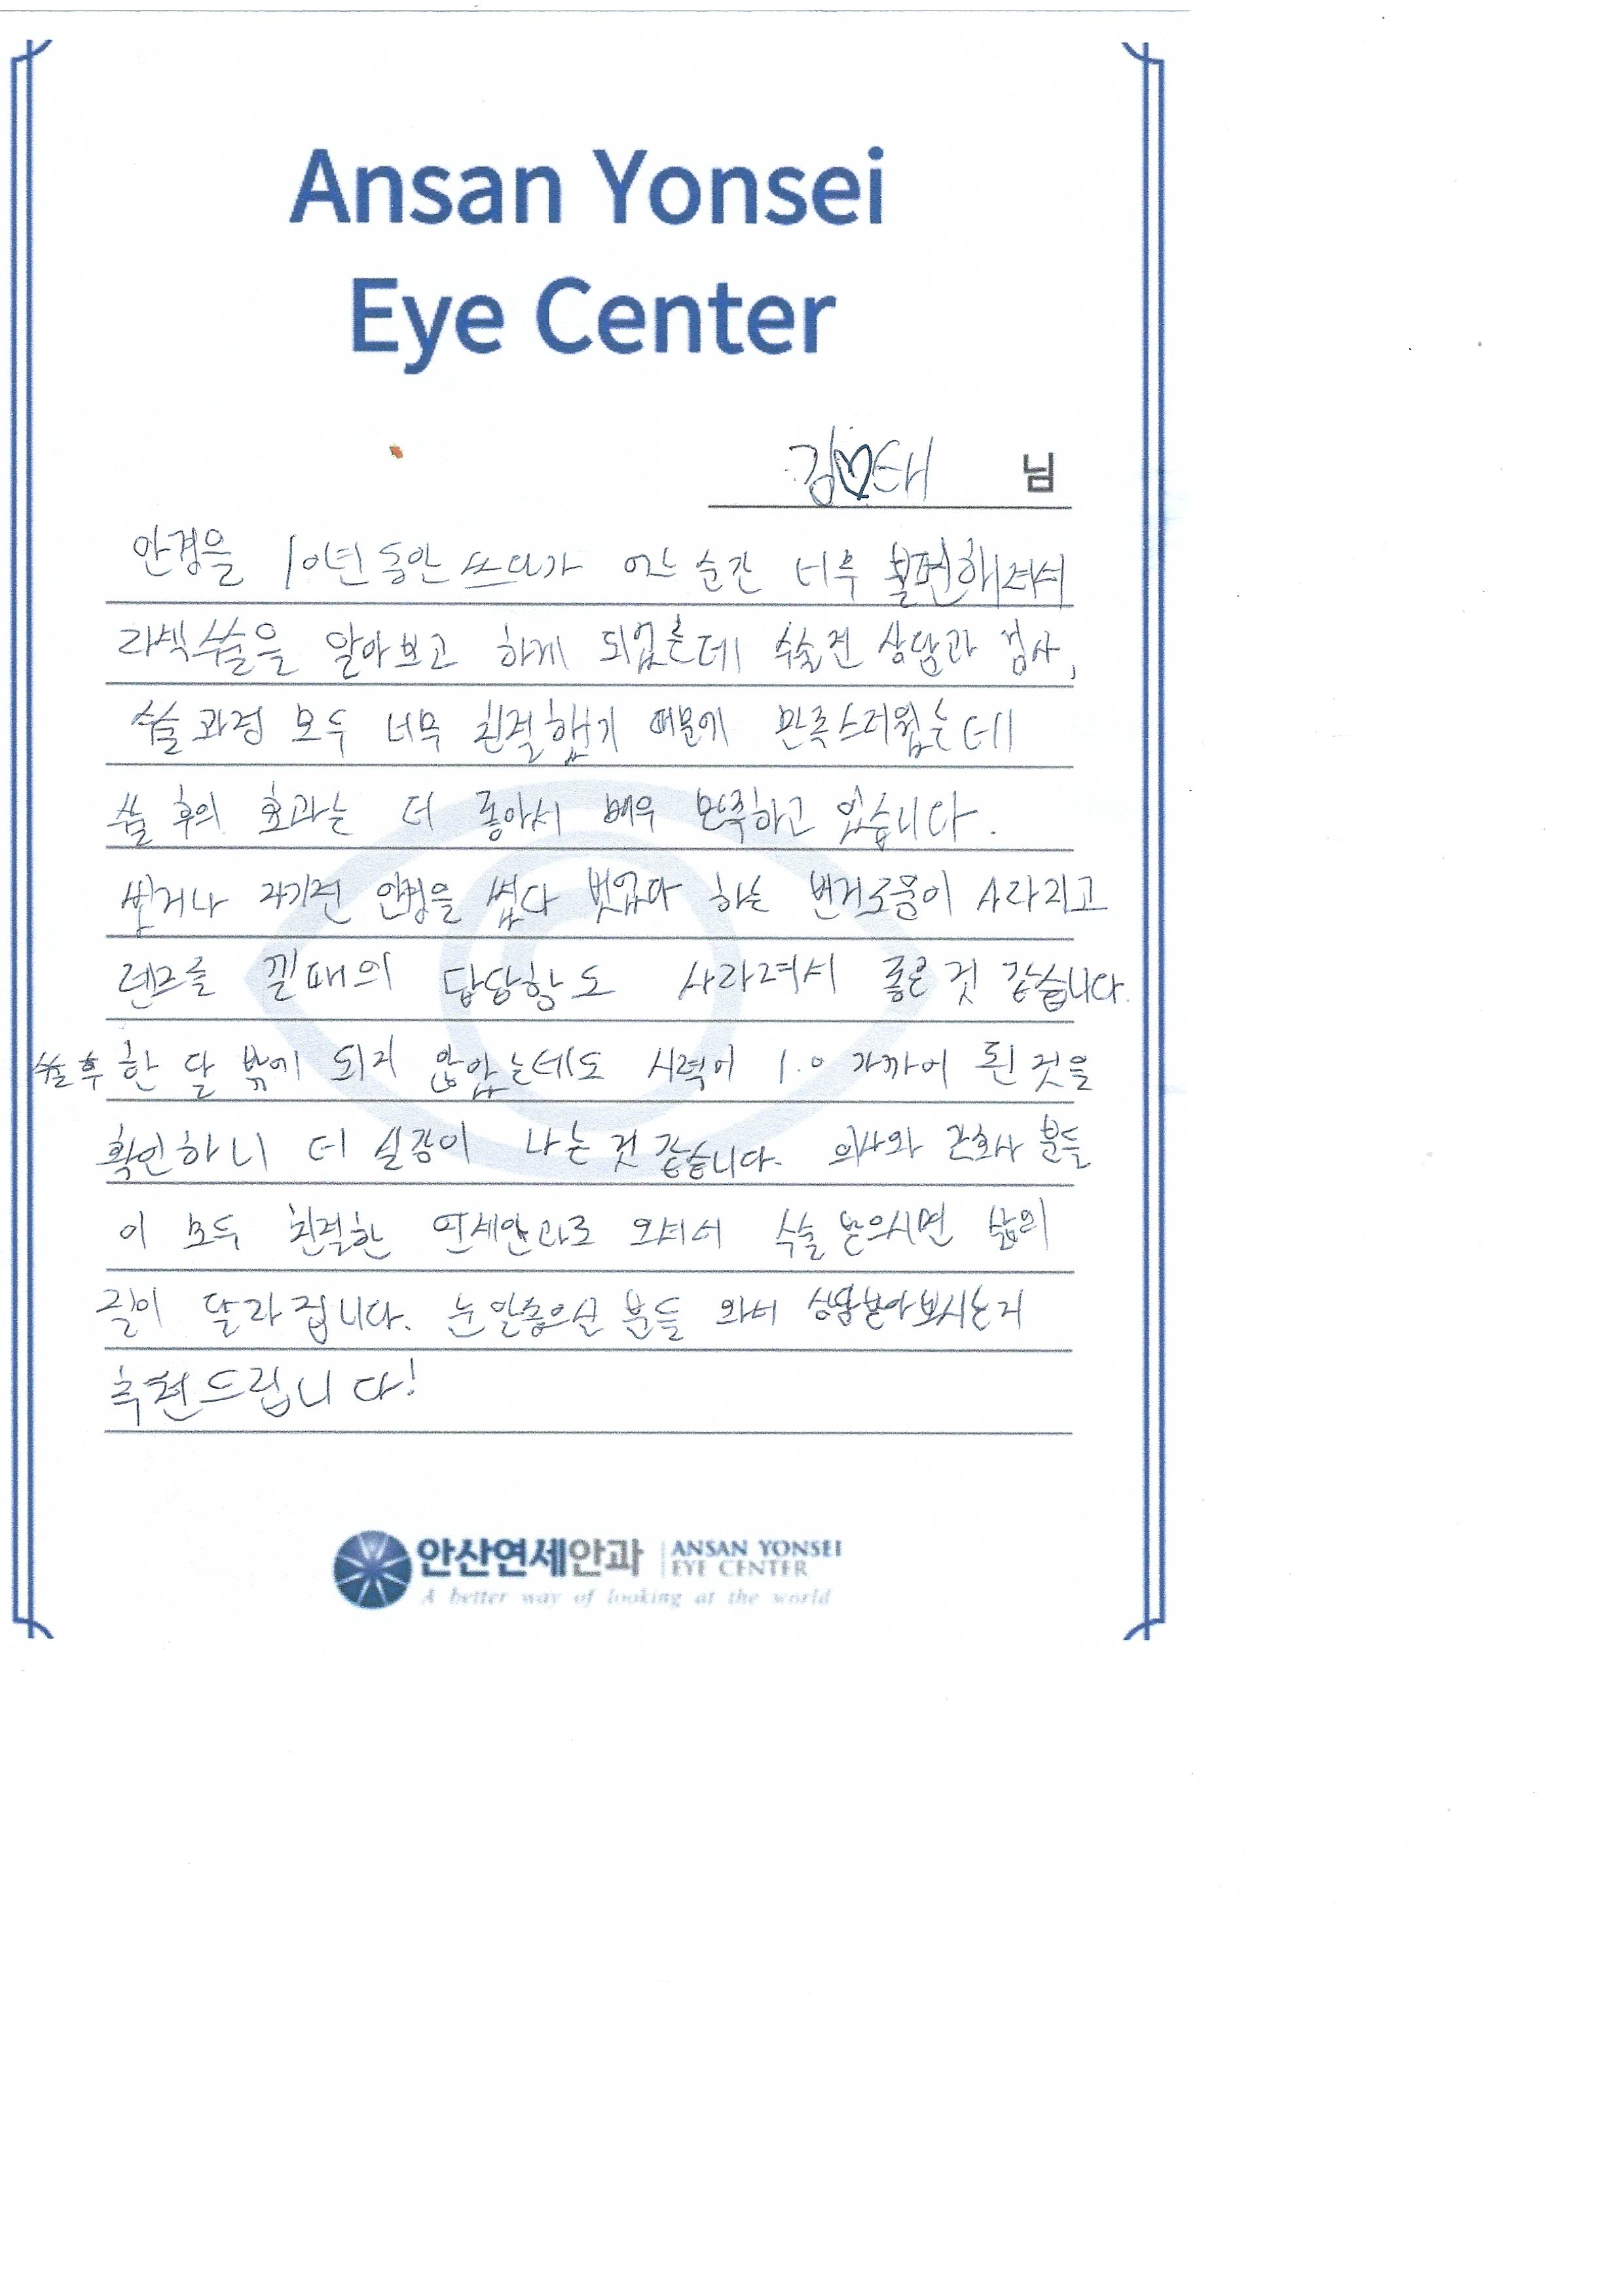 Ansan Yonsei
Eye Center
김♡태 님
안경을 10년 동안 쓰다가 어느 순간 너무 불편해져서
라섹수술을 알아보고 하게 되었는데 수술전 상담과 검사,
수술과정 모두 너무 친절했기 때문에 만족스러웠는데
수술 후의 효과는 더 좋아서 매우 만족하고 있습니다.
씻거나 자기전 안경을 썼다 벗었다 하는 번거로움이 사라지고
렌즈를 낄때의 답답함도 사라져서 좋은 것 같습니다.
수술 후 한 달 밖에 되지 않았는데도 시력이 1.0 가까이 된 것을
확인하니 더 실감이 나는 것 같습니다. 의사와 간호사 분들
이 모두 친절한 연세안과로 오셔서 수술 받으시면 삶의
질이 달라집니다. 눈 안좋으신 분들 와서 상담받아보시는거
추천드립니다!
안산연세안과 ANSAN YONSEI
EYE CENTER
A better way of looking at the world